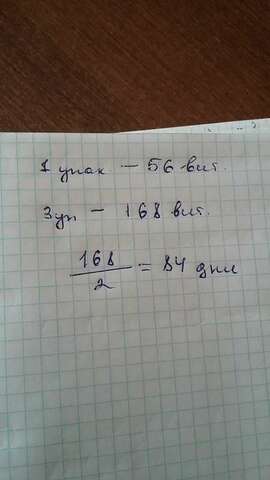 1 упак — 56 вит.
3 уп — 168 вит.
168
2 = 84 дни